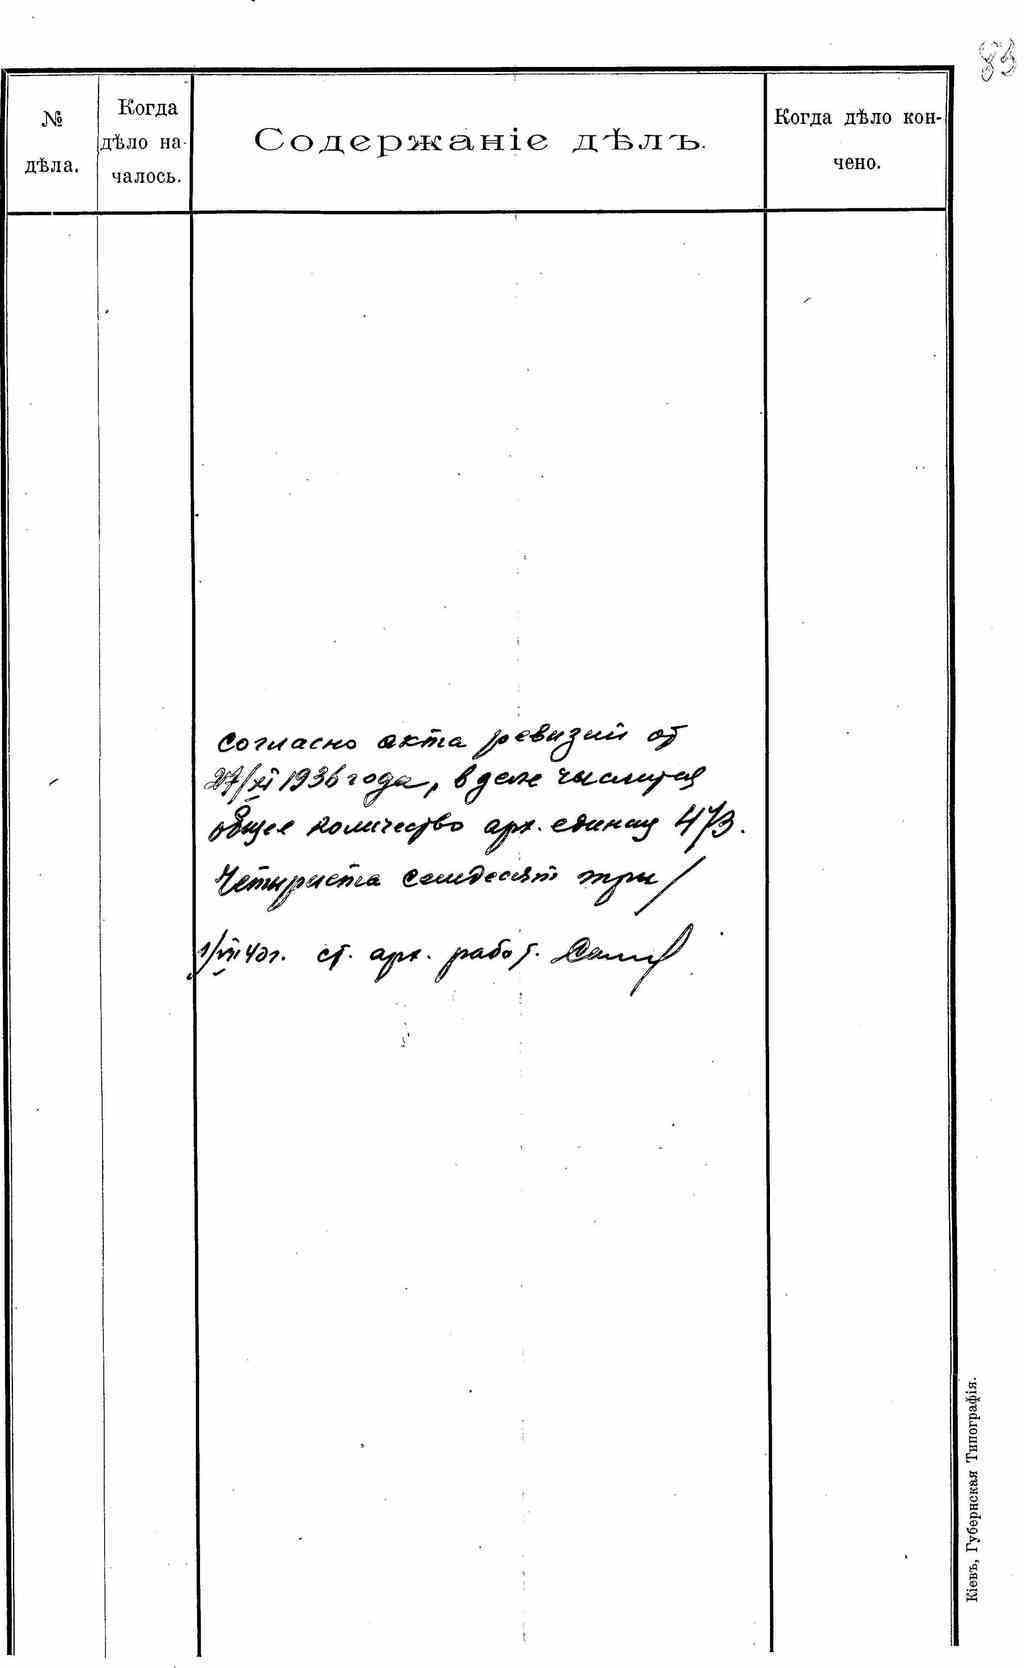 83
№
дѣла.
Когда
дѣло на-
чалось.
Содержаніе дѣлъ.
Когда дѣло кон-
чено.
Согласно акта ревизии от
27/XI 1936 года, в деле числится
общее количество арх. единиц 473.
Четыриста семдесят три/
1/VII 40г. ст. арх. работ.
Кіевъ, Губернская Типографія.